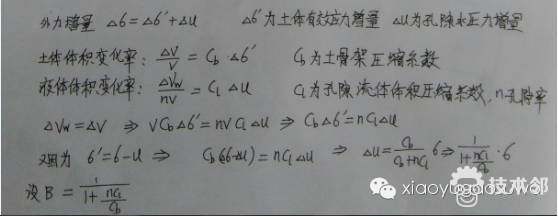 外力增量 Δб=Δб′+Δu Δб′为土体有效应力增量 Δu为孔隙水压力增量
土体体积变化率: ΔV/V = Cb·Δб′ Cb为土骨架压缩系数
液体体积变化率: ΔVw/nV = Cl Δu Cl为孔隙流体体积压缩系数,n孔隙率
ΔVw=ΔV ⇒ VCbΔб′=nVClΔu ⇒ CbΔб′=nClΔu
又因为 б′=б-u ⇒ Cb(б-Δu)=nClΔu ⇒ Δu=Cb/(Cb+nCl) б ⇒ 1/(1+nCl/Cb)·б
设B= 1/(1+nCl/Cb)
技术邻